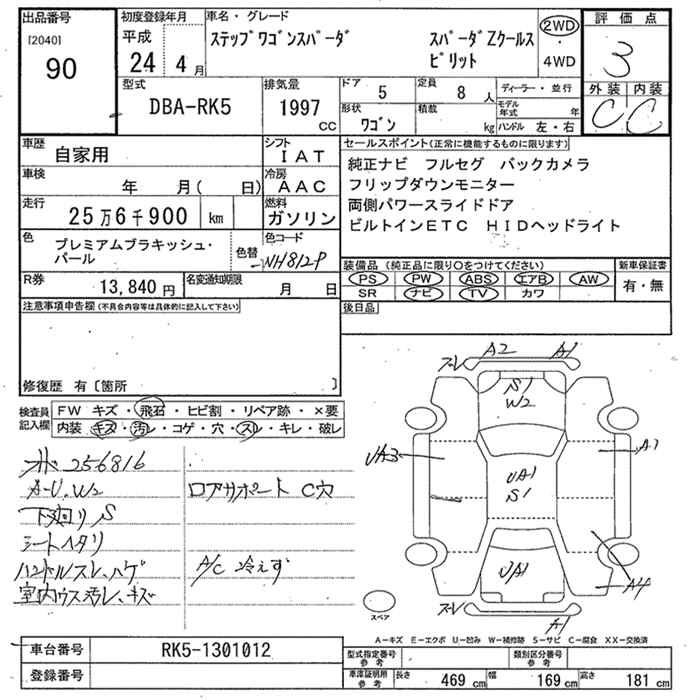 出品番号
[2040]
90
初度登録年月
平成
24年 4月
車名・グレード
ステップワゴンスパーダ スパーダZクールス
ピリット
2WD
・
4WD
評価点
3
外装 内装
C C
型式
DBA-RK5
排気量
1997
CC
ドア 5
形状
ワゴン
定員
8人
積載
kg
ディーラー・並行
モデル年式 年
ハンドル 左・右
車歴
自家用
シフト
IAT
車検
年 月( 日)
冷房
AAC
走行
25万6千900 km
燃料
ガソリン
色
プレミアムブラキッシュ・
パール
色替
色コード
NH812P
R券
13,840円
名変通知期限
月 日
セールスポイント(正常に機能するものに限ります)
純正ナビ フルセグ バックカメラ
フリップダウンモニター
両側パワースライドドア
ビルトインETC HIDヘッドライト
装備品(純正品に限り○をつけてください)
PS PW ABS エアB AW
SR ナビ TV カワ
新車保証書
有・無
後日品
注意事項申告欄(不具合内容等は具体的に記入して下さい)
修復歴 有〔箇所 〕
検査員
記入欄
FW キズ・飛石・ヒビ割・リペア跡・×要
内装 キズ・汚レ・コゲ・穴・スレ・キレ・破レ
256816
A-U、W2
下廻リS
シートヘタリ
ハンドルスレ、ハゲ
室内ウス汚レ、キズ
ロアサポート C穴
A/C 冷えず
スレ A2 A1
S1
W2
UA3
A1
UA1
S1
UA1
A4
スレ
A1
スペア
A-キズ E-エクボ U-凹み W-補修跡 S-サビ C-腐食 XX-交換済
車台番号
RK5-1301012
登録番号
型式指定番号
参考
類別区分番号
参考
車庫証明用
参考
長さ 469cm 幅 169cm 高さ 181cm